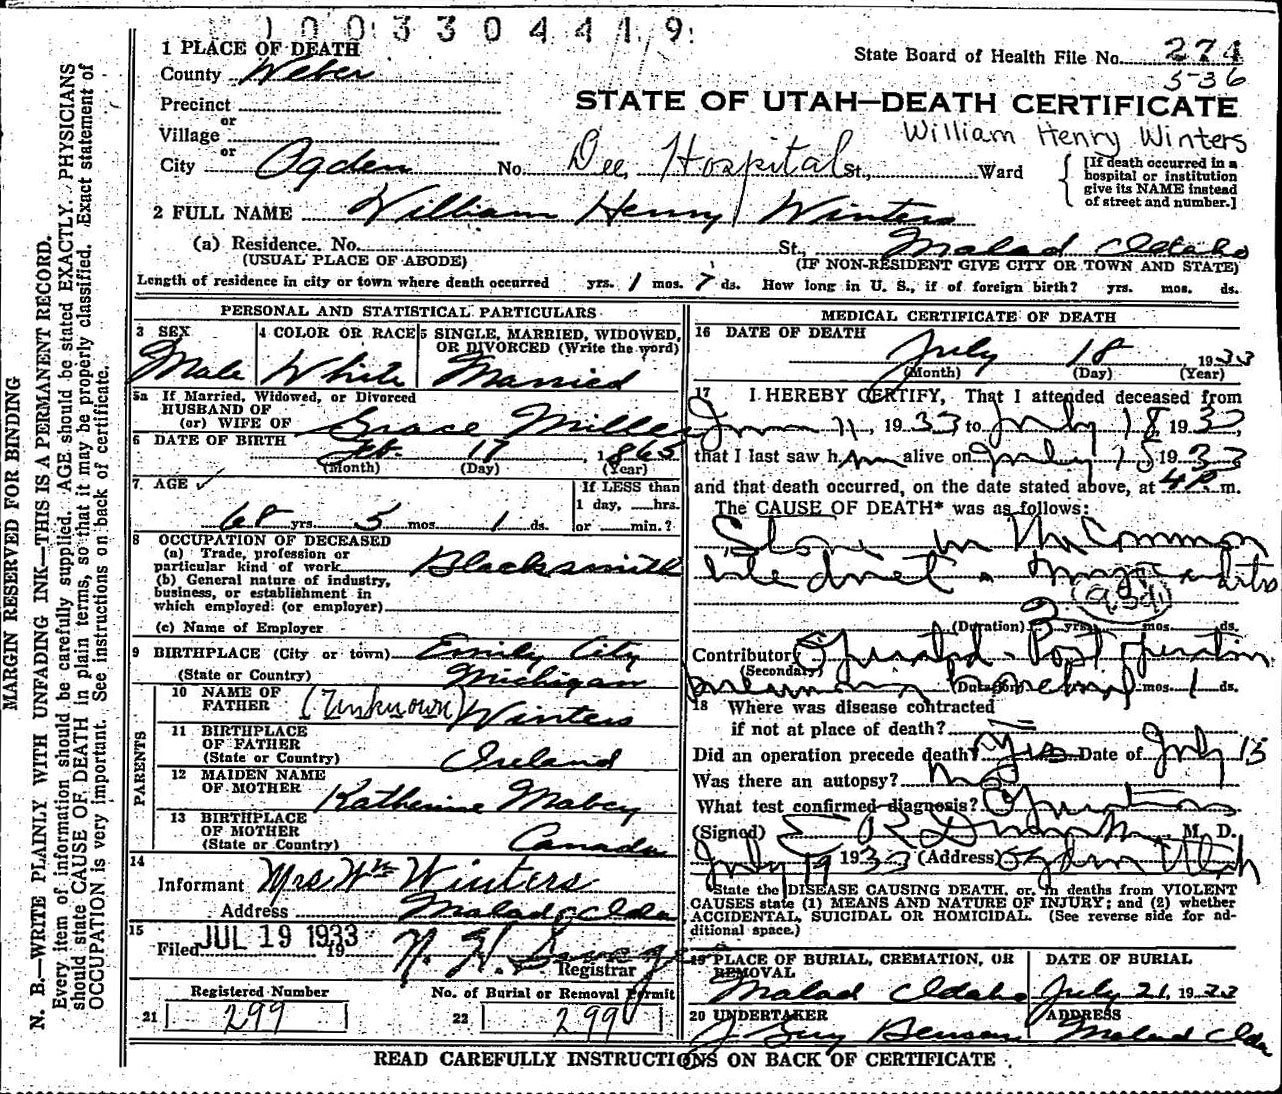 1003304419
1 PLACE OF DEATH
County Weber
State Board of Health File No. 274
5-36
Precinct
or
Village
or
City Ogden No. Dee Hospital St., Ward
STATE OF UTAH—DEATH CERTIFICATE
William Henry Winters
[If death occurred in a
hospital or institution
give its NAME instead
of street and number.]
2 FULL NAME William Henry Winters
(a) Residence. No. St., Malad Idaho
(USUAL PLACE OF ABODE) (IF NON-RESIDENT GIVE CITY OR TOWN AND STATE)
Length of residence in city or town where death occurred yrs. 1 mos. 7 ds. How long in U. S., if of foreign birth? yrs. mos. ds.
PERSONAL AND STATISTICAL PARTICULARS
3 SEX
Male
4 COLOR OR RACE
White
5 SINGLE, MARRIED, WIDOWED,
OR DIVORCED (Write the word)
Married
5a If Married, Widowed, or Divorced
HUSBAND OF
(or) WIFE OF Grace Miller
6 DATE OF BIRTH Feb. 17, 1865
(Month) (Day) (Year)
7. AGE ✓
68 yrs. 5 mos. 1 ds.
If LESS than
1 day, hrs.
or min.?
8 OCCUPATION OF DECEASED
(a) Trade, profession or
particular kind of work Blacksmith
(b) General nature of industry,
business, or establishment in
which employed (or employer)
(c) Name of Employer
9 BIRTHPLACE (City or town) Emily City
(State or Country) Michigan
PARENTS
10 NAME OF
FATHER (Unknown) Winters
11 BIRTHPLACE
OF FATHER
(State or Country) Ireland
12 MAIDEN NAME
OF MOTHER Katherine Mabey
13 BIRTHPLACE
OF MOTHER
(State or Country) Canada
14
Informant Mrs Wm Winters
Address Malad, Ida
15
Filed JUL 19 1933 19
N. H. Savage
Registrar
Registered Number
21 299
No. of Burial or Removal Permit
22 299
MEDICAL CERTIFICATE OF DEATH
16 DATE OF DEATH
July 18 1933
(Month) (Day) (Year)
17 I HEREBY CERTIFY, That I attended deceased from
June 11, 1933 to July 18, 1933,
that I last saw him alive on July 18 1933
and that death occurred, on the date stated above, at 4 P. m.
The CAUSE OF DEATH* was as follows:
Stone in the Common
bile duct
(Duration) 2 yrs. mos. ds.
Contributory Operated - Post operation
(Secondary)
(Duration) mos. 1 ds.
18 Where was disease contracted
if not at place of death?
Did an operation precede death? Yes Date of July 15
Was there an autopsy? No
What test confirmed diagnosis? Operation
(Signed) E R Dumke M. D.
July 19 1933 (Address) Ogden Utah
*State the DISEASE CAUSING DEATH, or, in deaths from VIOLENT
CAUSES state (1) MEANS AND NATURE OF INJURY; and (2) whether
ACCIDENTAL, SUICIDAL OR HOMICIDAL. (See reverse side for ad-
ditional space.)
19 PLACE OF BURIAL, CREMATION, OR
REMOVAL
Malad Idaho
DATE OF BURIAL
July 21, 1933
20 UNDERTAKER
J Guy Benson
ADDRESS
Malad Ida
READ CAREFULLY INSTRUCTIONS ON BACK OF CERTIFICATE
MARGIN RESERVED FOR BINDING
N. B.—WRITE PLAINLY WITH UNFADING INK—THIS IS A PERMANENT RECORD.
Every item of information should be carefully supplied. AGE should be stated EXACTLY. PHYSICIANS
should state CAUSE OF DEATH in plain terms, so that it may be properly classified. Exact statement of
OCCUPATION is very important. See instructions on back of certificate.